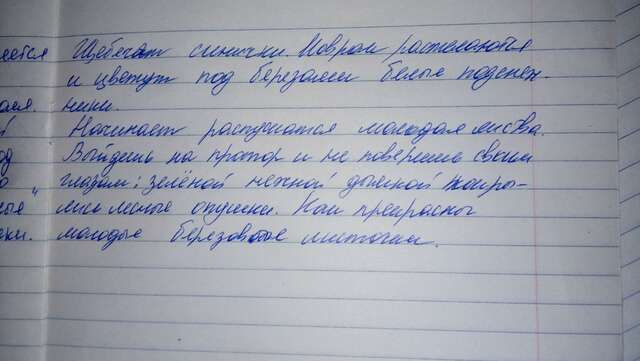 яется Щебечат синички. Ковром растелаются
и цветут под березами белые подснеж-
ники.
Начинает распускатся молодая листва.
Выйдешь на простор и не поверишь своим
глазам: зелёной нежной дымкой покры-
лись лесные опушки. Как прекрасны
ки. молодые березовые листочки.